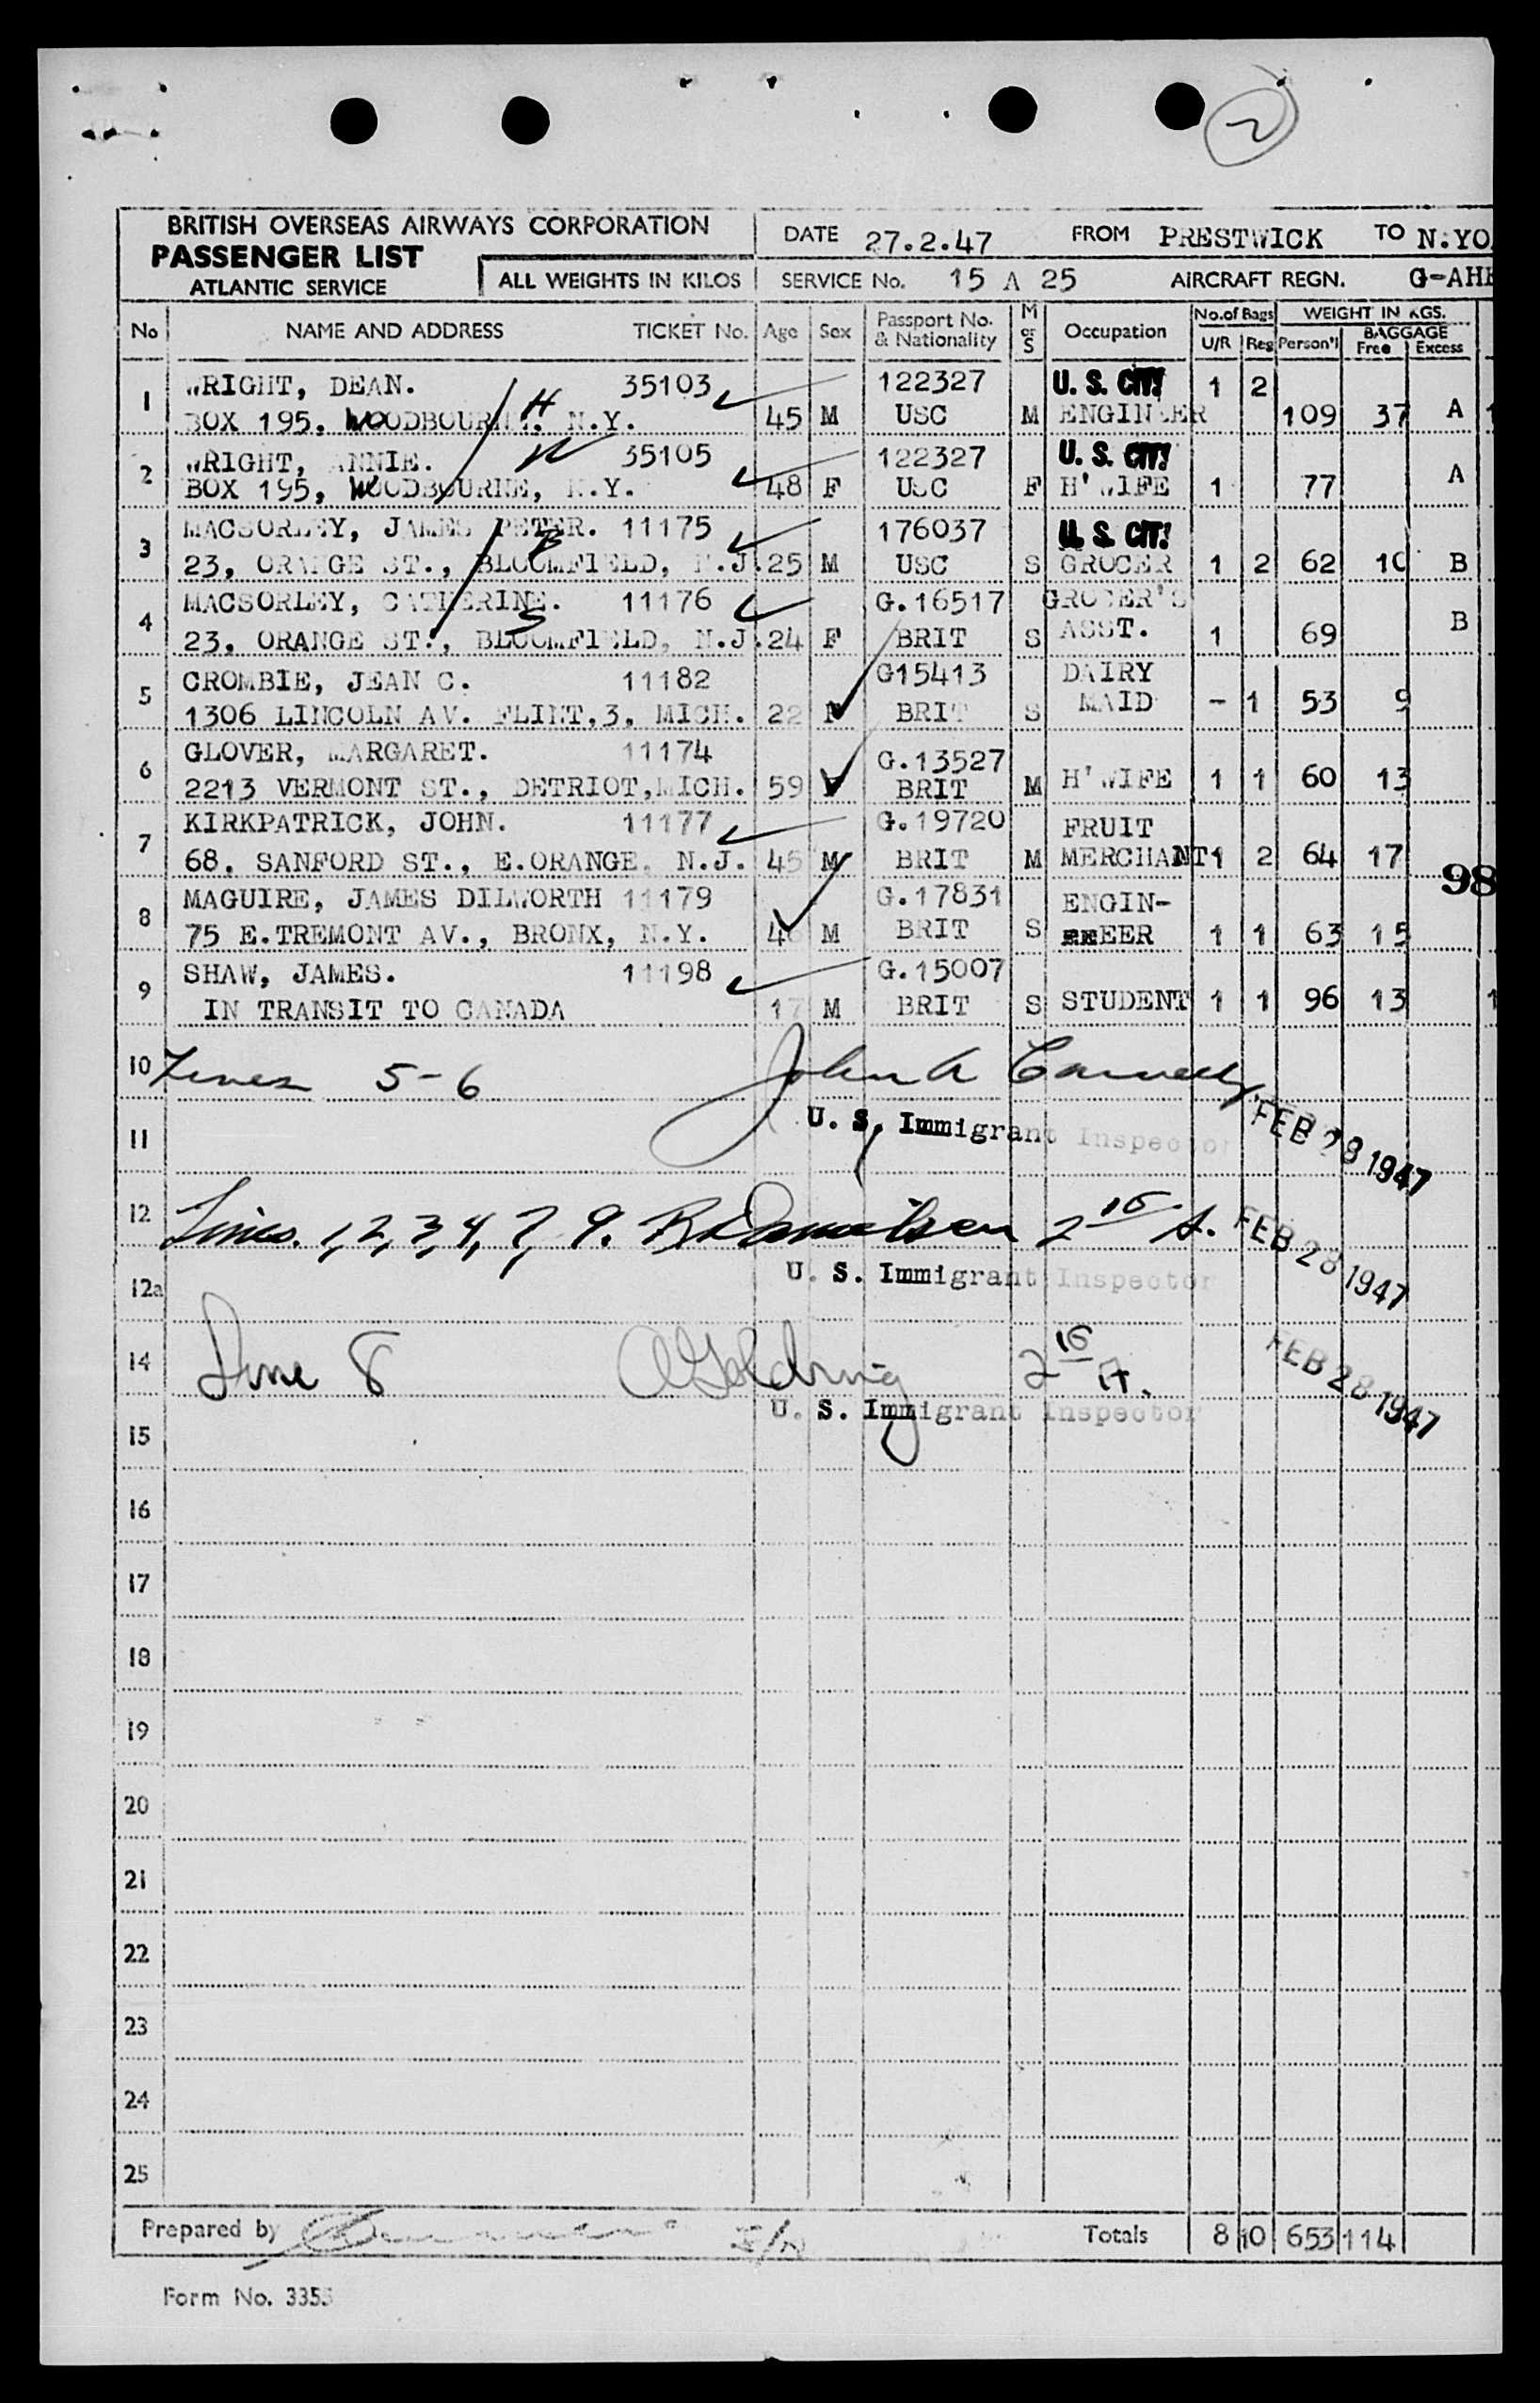 2
BRITISH OVERSEAS AIRWAYS CORPORATION
PASSENGER LIST
ATLANTIC SERVICE
ALL WEIGHTS IN KILOS
DATE 27.2.47 FROM PRESTWICK TO N.YO
SERVICE No. 15 A 25 AIRCRAFT REGN. G-AH
No NAME AND ADDRESS TICKET No. Age Sex Passport No. & Nationality M or S Occupation No. of Bags U/R Reg WEIGHT IN KGS. Person'l BAGGAGE Free Excess
1 WRIGHT, DEAN. 35103 122327 U. S. CIT! 1 2
BOX 195, WOODBOURNE, N.Y. 45 M USC M ENGINEER 109 37 A
H
2 WRIGHT, ANNIE. W 35105 122327 U. S. CIT!
BOX 195, WOODBOURNE, N.Y. 48 F USC F H'WIFE 1 77 A
3 MACSORLEY, JAMES PETER. 11175 176037 U. S. CIT!
23, ORANGE ST., BLOOMFIELD, N.J. 25 M USC S GROCER 1 2 62 10 B
B
4 MACSORLEY, CATHERINE. 11176 G.16517 GROCER'S
23, ORANGE ST., BLOOMFIELD, N.J. 24 F BRIT S ASST. 1 69 B
S
5 CROMBIE, JEAN C. 11182 G15413 DAIRY
1306 LINCOLN AV. FLINT,3, MICH. 22 F BRIT S MAID - 1 53 9
6 GLOVER, MARGARET. 11174 G.13527
2213 VERMONT ST., DETRIOT,MICH. 59 F BRIT M H'WIFE 1 1 60 13
7 KIRKPATRICK, JOHN. 11177 G.19720 FRUIT
68. SANFORD ST., E.ORANGE, N.J. 45 M BRIT M MERCHANT 1 2 64 17
98
8 MAGUIRE, JAMES DILWORTH 11179 G.17831 ENGIN-
75 E.TREMONT AV., BRONX, N.Y. 46 M BRIT S EER 1 1 63 15
9 SHAW, JAMES. 11198 G.15007
IN TRANSIT TO CANADA 17 M BRIT S STUDENT 1 1 96 13
10 Lines 5-6 John A
11 U. S. Immigrant Inspector FEB 28 1947
12 Lines. 1, 2, 3, 4, 7, 9. 2 15 A. FEB 28 1947
12a U. S. Immigrant Inspector
14 Line 8 A Goldring 2 15 A. FEB 28 1947
U. S. Immigrant Inspector
15
16
17
18
19
20
21
22
23
24
25
Prepared by Totals 8 10 653 114
Form No. 3355